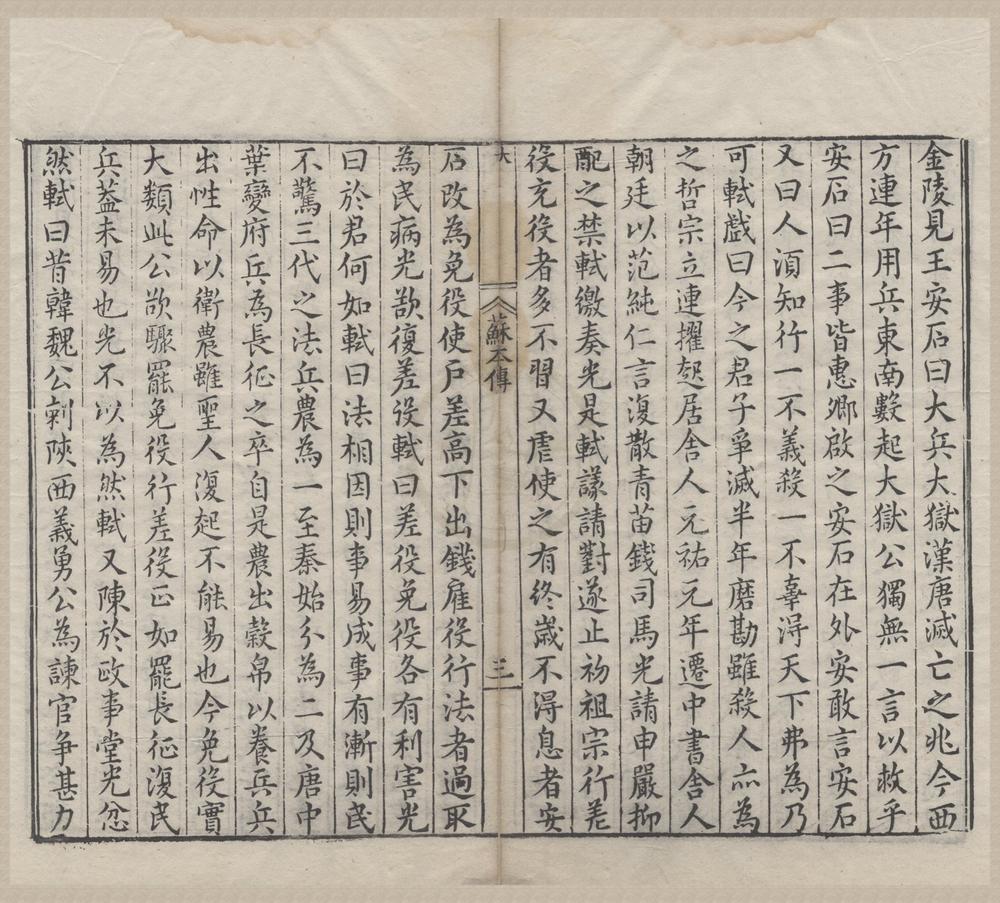 金陵見王安石曰大兵大獄漢唐滅亡之兆今西
方連年用兵東南數起大獄公獨無一言以救乎
安石曰二事皆惠卿啟之安石在外安敢言安石
又曰人須知行一不義殺一不辜淂天下弗為乃
可軾戲曰今之君子爭減半年磨勘雖殺人亦為
之哲宗立連擢起居舍人元祐元年遷中書舍人
朝廷以范純仁言復散青苗錢司馬光請申嚴抑
配之禁軾繳奏光是軾議請對遂止初祖宗行差
役充役者多不習又虐使之有終歲不淂息者安
蘇本傳
三
石改為免役使戶差高下出錢雇役行法者過取
為民病光欲復差役軾曰差役免役各有利害光
曰於君何如軾曰法相因則事易成事有漸則民
不驚三代之法兵農為一至秦始分為二及唐中
葉變府兵為長征之卒自是農出穀帛以養兵兵
出性命以衛農雖聖人復起不能易也今免役實
大類此公欲驟罷免役行差役正如罷長征復民
兵蓋未易也光不以為然軾又陳於政事堂光忿
然軾曰昔韓魏公刺陝西義勇公為諫官争甚力